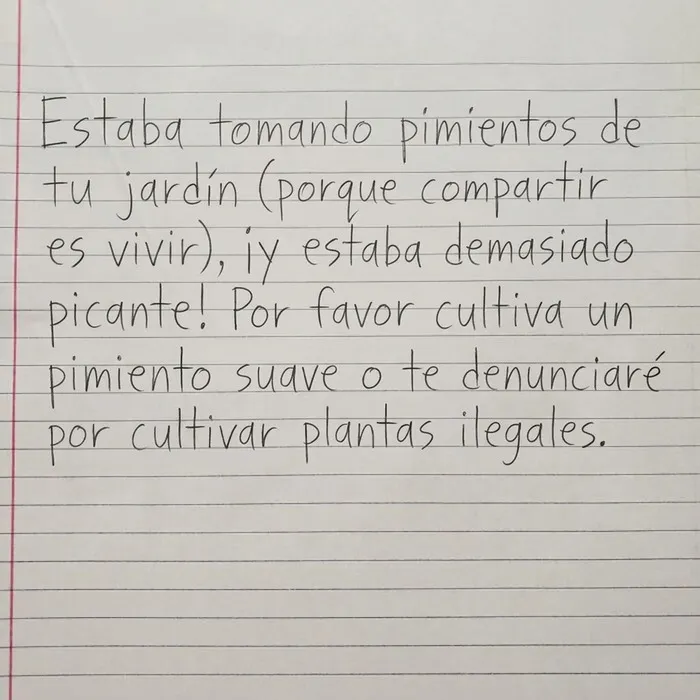 Estaba tomando pimientos de
tu jardín (porque compartir
es vivir), ¡y estaba demasiado
picante! Por favor cultiva un
pimiento suave o te denunciaré
por cultivar plantas ilegales.